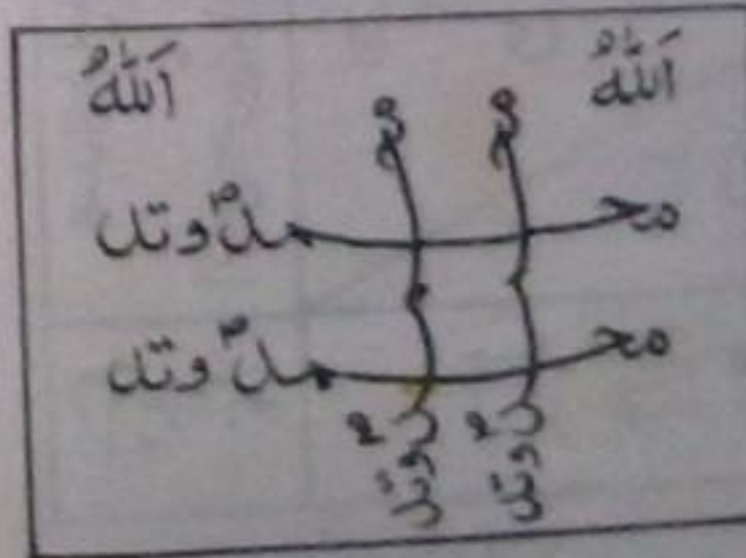 اَللّٰهُ اَللّٰهُ
محمدؐ وتد
محمدؐ وتد
محمدؐ وتد
محمدؐ وتد